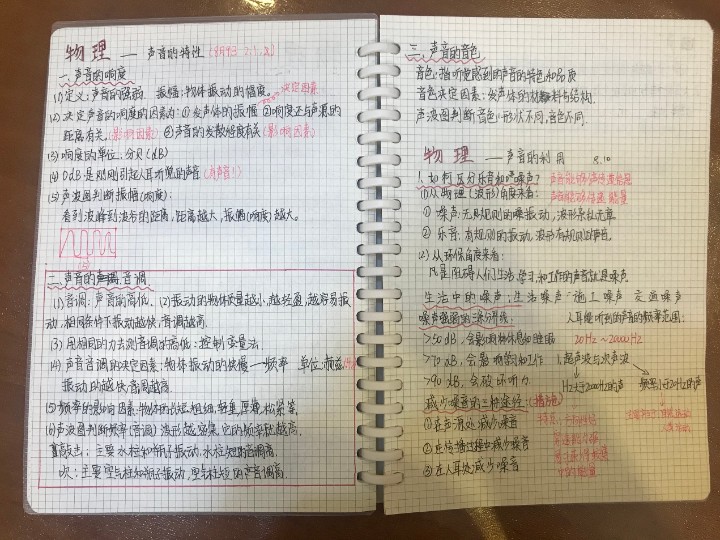 物理 — 声音的特性 (8月9日
一.声音的响度
(1)定义:声音的强弱. 振幅:物体振动的幅度. 决定因素
(2)决定声音的响度的因素为:①发声体的振幅 ②响度还与声源的
距离有关(影响因素) ③声音的发散程度有关(影响因素)
(3)响度的单位:分贝(dB)
(4)0dB是刚刚引起人耳听觉的声音(有声音!)
(5)声波图判断振幅(响度):
看到波峰到波谷的距离,距离越大,振幅(响度)越大。
二.声音的音调
(1)音调:声音的高低. (2)振动的物体质量越小,越轻盈,越容易振
动,相同条件下振动越快,音调越高.
(3)用相同的力去测音调的高低:控制变量法
(4)声音音调的决定因素:物体振动的快慢—频率 单位:赫兹
振动的越快,音调越高.
(5)频率的影响因素:物体的长短,粗细,轻重,厚薄,松紧等.
(6)声波图判断频率(音调)波形越密集,它的频率就越高.
敲击:主要水柱和瓶子振动,水柱短的音调高.
吹:主要空气柱和瓶子振动,空气柱短的声音调高.
三.声音的音色
音色:指听觉感到的声音的特色和品质
音色决定因素:发声体的材料与结构.
声波图判断音色:形状不同,音色不同.
物理 — 声音的利用 8.10
1.如何区分乐音和噪声?
(1)从物理(波形)角度来看:
①噪声:无规则的噪振动,波形杂乱无章
②乐音:有规则的振动,波形有规则的声音.
(2)从环保角度来看:
凡是阻碍人们生活,学习,和工作的声音就是噪声.
生活中的噪声:生活噪声 施工噪声 交通噪声
噪声强弱的三条分界线: 人耳能听到的声音的频率范围:
>50dB,会影响休息和睡眠 20Hz~20000Hz
>70dB,会影响学习和工作 1.超声波与次声波
>90dB,会破坏听力
Hz大于20000Hz的声 频率小于20Hz的声
减少噪音的三种途径:(措施)
①在声源处减少噪音
②在传播过程中减少噪音
③在人耳处减少噪音